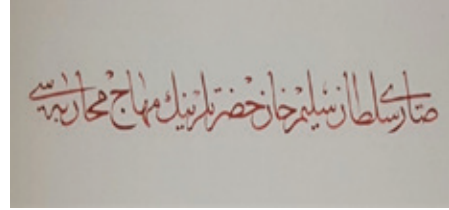 صاری سلطان سلیم خان حضرتلرینیك مهاج محاربه‌سی